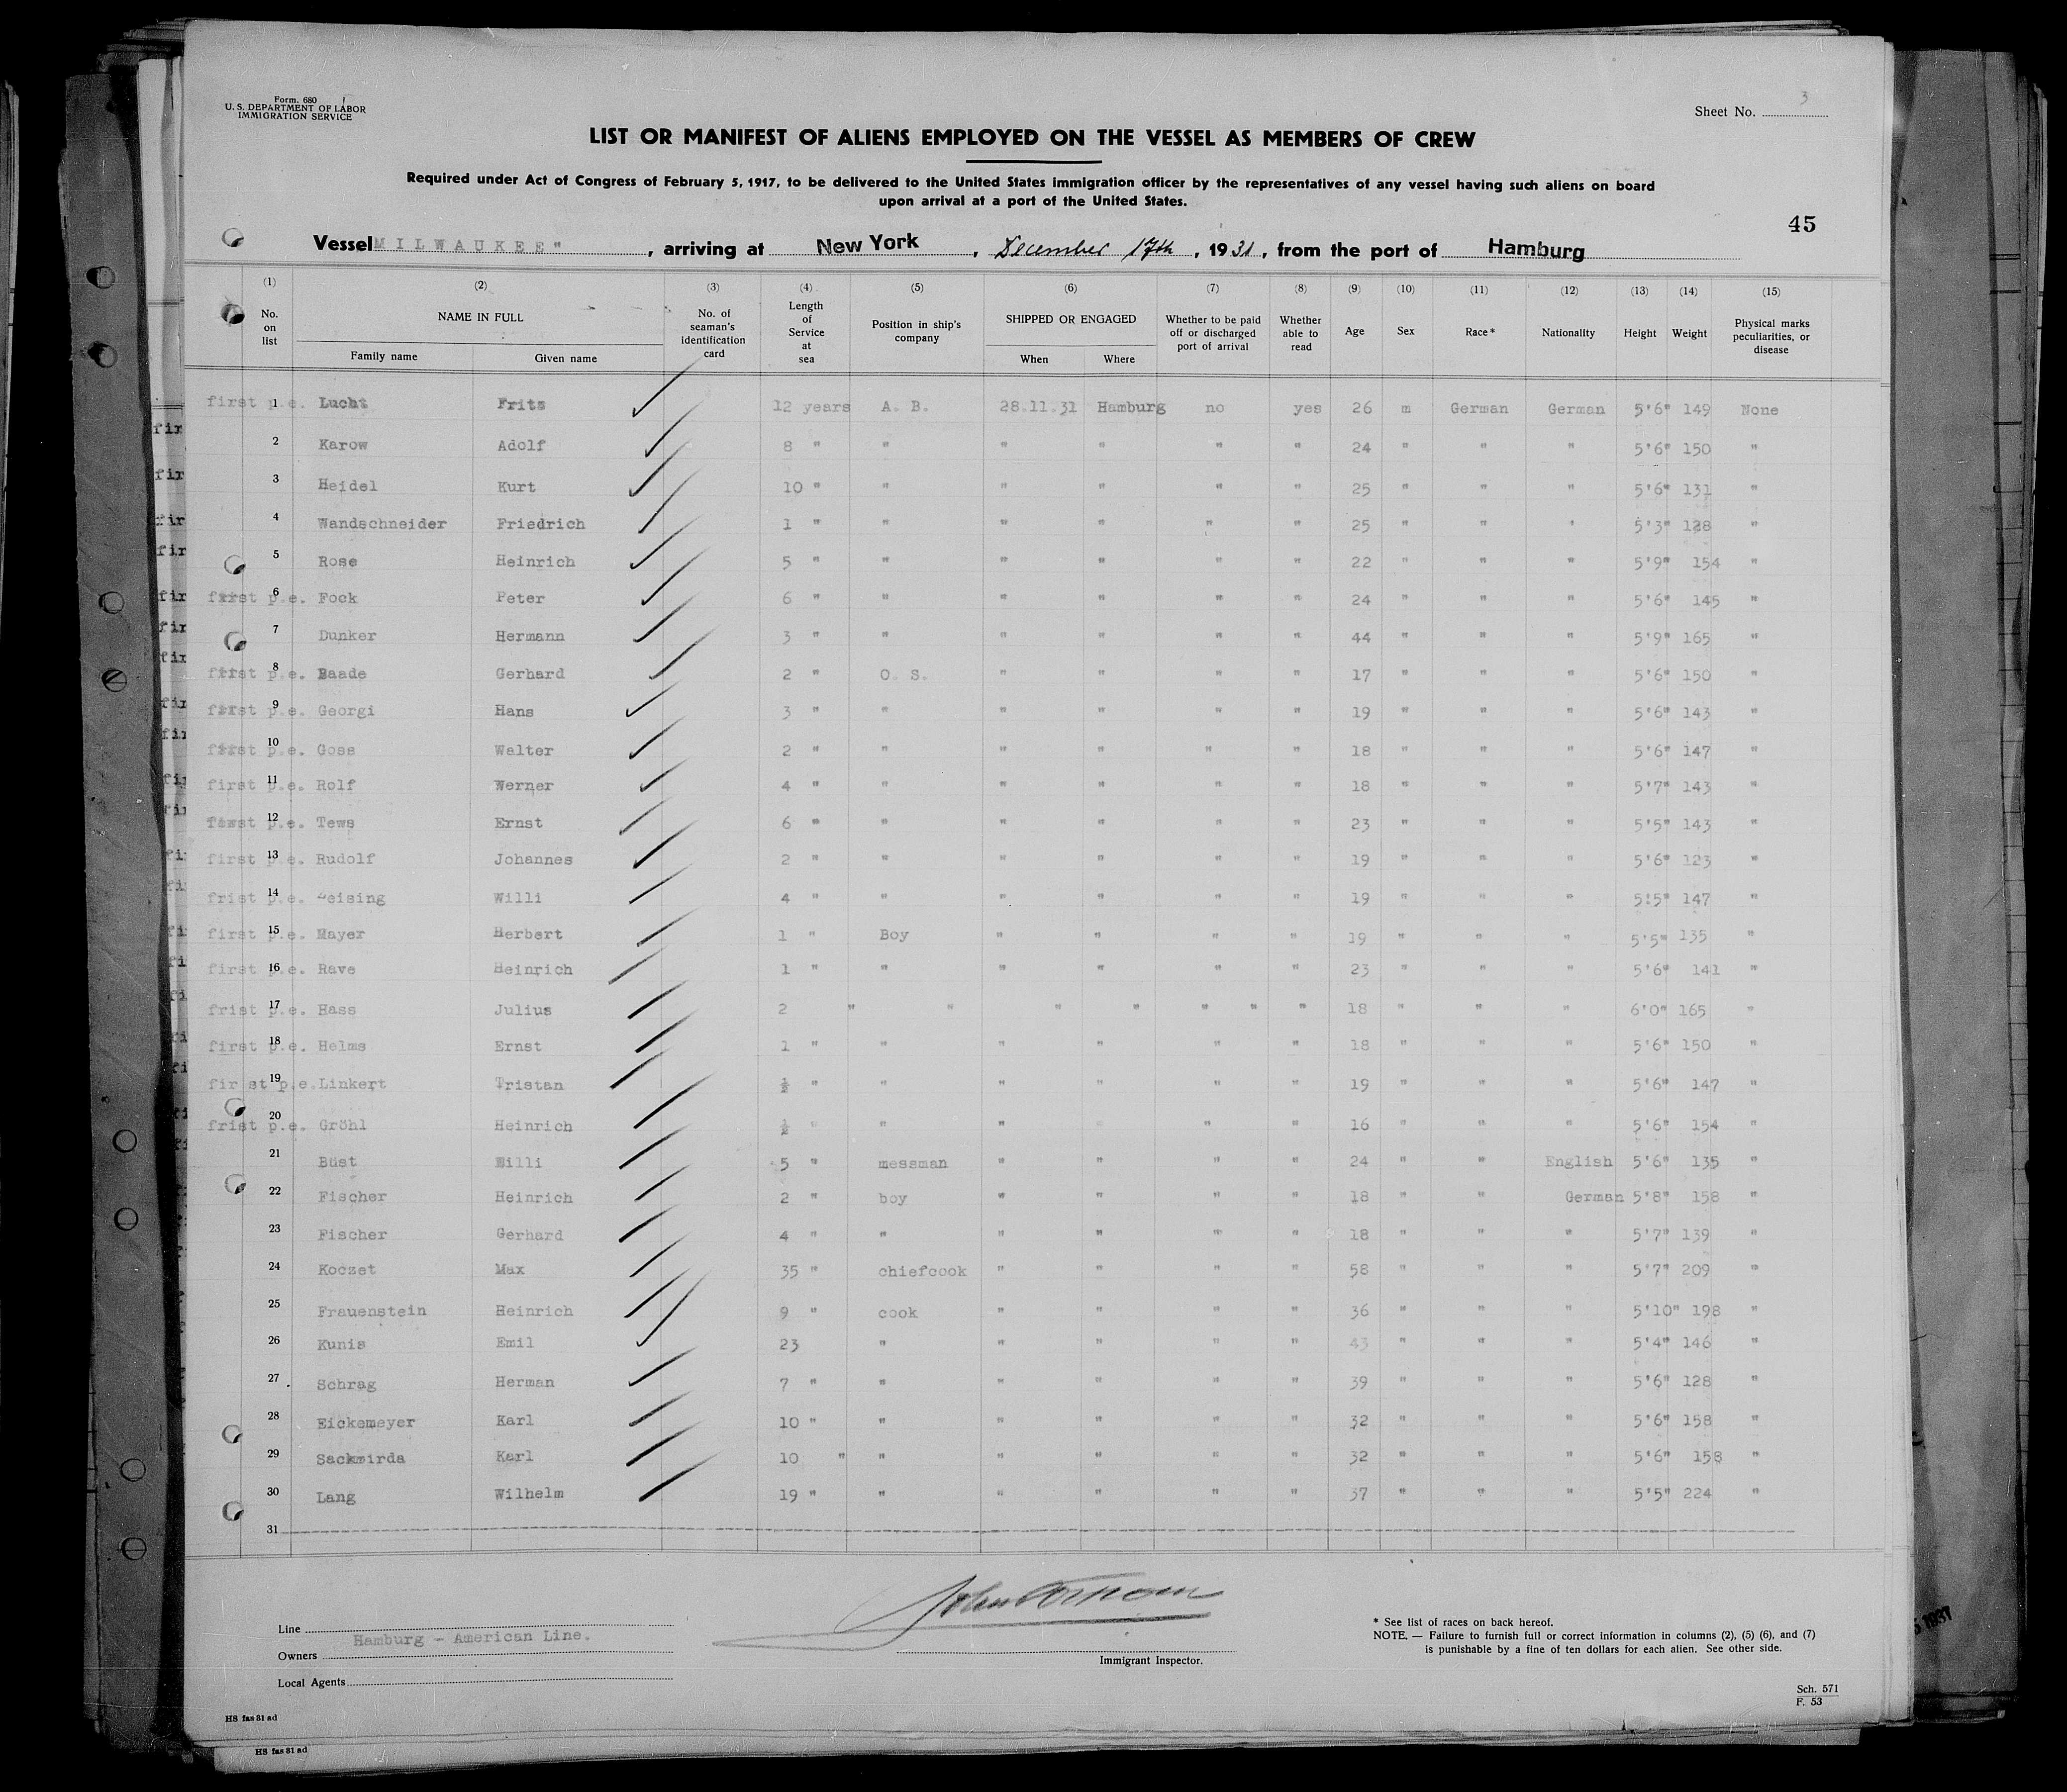 Form. 680
U. S. DEPARTMENT OF LABOR
IMMIGRATION SERVICE
Sheet No. 3
LIST OR MANIFEST OF ALIENS EMPLOYED ON THE VESSEL AS MEMBERS OF CREW
Required under Act of Congress of February 5, 1917, to be delivered to the United States immigration officer by the representatives of any vessel having such aliens on board
upon arrival at a port of the United States.
45
Vessel MILWAUKEE" , arriving at New York , December 17th , 1931 , from the port of Hamburg
(1) (2) (3) (4) (5) (6) (7) (8) (9) (10) (11) (12) (13) (14) (15)
No. on list NAME IN FULL Family name Given name No. of seaman's identification card Length of Service at sea Position in ship's company SHIPPED OR ENGAGED When Where Whether to be paid off or discharged port of arrival Whether able to read Age Sex Race* Nationality Height Weight Physical marks peculiarities, or disease
first p.e. 1 Lucht Fritz 12 years A. B. 28.11.31 Hamburg no yes 26 m German German 5'6" 149 None
2 Karow Adolf 8 " " " " " " 24 " " " 5'6" 150 "
3 Heidel Kurt 10 " " " " " " 25 " " " 5'6" 131 "
4 Wandschneider Friedrich 1 " " " " " " 25 " " " 5'3" 128 "
5 Rose Heinrich 5 " " " " " " 22 " " " 5'9" 154 "
first p.e. 6 Fock Peter 6 " " " " " " 24 " " " 5'6" 145 "
7 Dunker Hermann 3 " " " " " " 44 " " " 5'9" 165 "
first p.e. 8 Baade Gerhard 2 " O. S. " " " " 17 " " " 5'6" 150 "
first p.e. 9 Georgi Hans 3 " " " " " " 19 " " " 5'6" 143 "
first p.e. 10 Goss Walter 2 " " " " " " 18 " " " 5'6" 147 "
first p.e. 11 Rolf Werner 4 " " " " " " 18 " " " 5'7" 143 "
p.e. 12 Tews Ernst 6 " " " " " " 23 " " " 5'5" 143 "
first p.e. 13 Rudolf Johannes 2 " " " " " " 19 " " " 5'6" 123 "
frist p.e. 14 Willi 4 " " " " " " 19 " " " 5'5" 147 "
first p.e. 15 Mayer Herbert 1 " Boy " " " " 19 " " " 5'5" 135 "
first p.e. 16 Rave Heinrich 1 " " " " " " 23 " " " 5'6" 141 "
frist p.e. 17 Hass Julius 2 " " " " " " " 18 " " " 6'0" 165 "
first p.e. 18 Helms Ernst 1 " " " " " " 18 " " " 5'6" 150 "
first p.e. 19 Linkert Tristan ½ " " " " " " 19 " " " 5'6" 147 "
frist p.e. 20 Gröhl Heinrich ½ " " " " " " 16 " " " 5'6" 154 "
21 Büst Willi 5 " messman " " " " 24 " " English 5'6" 135 "
22 Fischer Heinrich 2 " boy " " " " 18 " " German 5'8" 158 "
23 Fischer Gerhard 4 " " " " " " 18 " " " 5'7" 139 "
24 Koczet Max 35 " chiefcook " " " " 58 " " " 5'7" 209 "
25 Frauenstein Heinrich 9 " cook " " " " 36 " " " 5'10" 198 "
26 Kunis Emil 23 " " " " " 43 " " " 5'4" 146 "
27 Schrag Herman 7 " " " " " " 39 " " " 5'6" 128 "
28 Eickemeyer Karl 10 " " " " " " 32 " " " 5'6" 158 "
29 Sackmirda Karl 10 " " " " " " 32 " " " 5'6" 158 "
30 Lang Wilhelm 19 " " " " " " 37 " " " 5'5" 224 "
31
Line
Hamburg - American Line.
Owners
Local Agents
Immigrant Inspector.
* See list of races on back hereof.
NOTE. — Failure to furnish full or correct information in columns (2), (5) (6), and (7)
is punishable by a fine of ten dollars for each alien. See other side.
Sch. 571
F. 53
HS fas 31 ad
HS fas 31 ad